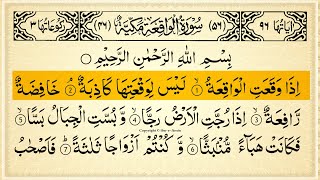 اٰیَاتُهَا ٩٦ (٥٦) سُوْرَةُ الْوَاقِعَةِ مَكِّیَّةٌ (٤٦) رُكُوْعَاتُهَا ٣
بِسْمِ اللّٰهِ الرَّحْمٰنِ الرَّحِیْمِ
اِذَا وَقَعَتِ الْوَاقِعَةُ ۙ﴿١﴾ لَیْسَ لِوَقْعَتِهَا كَاذِبَةٌ ۘ﴿٢﴾ خَافِضَةٌ
رَّافِعَةٌ ۙ﴿٣﴾ اِذَا رُجَّتِ الْاَرْضُ رَجًّا ۙ﴿٤﴾ وَّ بُسَّتِ الْجِبَالُ بَسًّا ۙ﴿٥﴾
فَكَانَتْ هَبَآءً مُّنْۢبَثًّا ۙ﴿٦﴾ وَّ كُنْتُمْ اَزْوَاجًا ثَلٰثَةً ؕ﴿٧﴾ فَاَصْحٰبُ